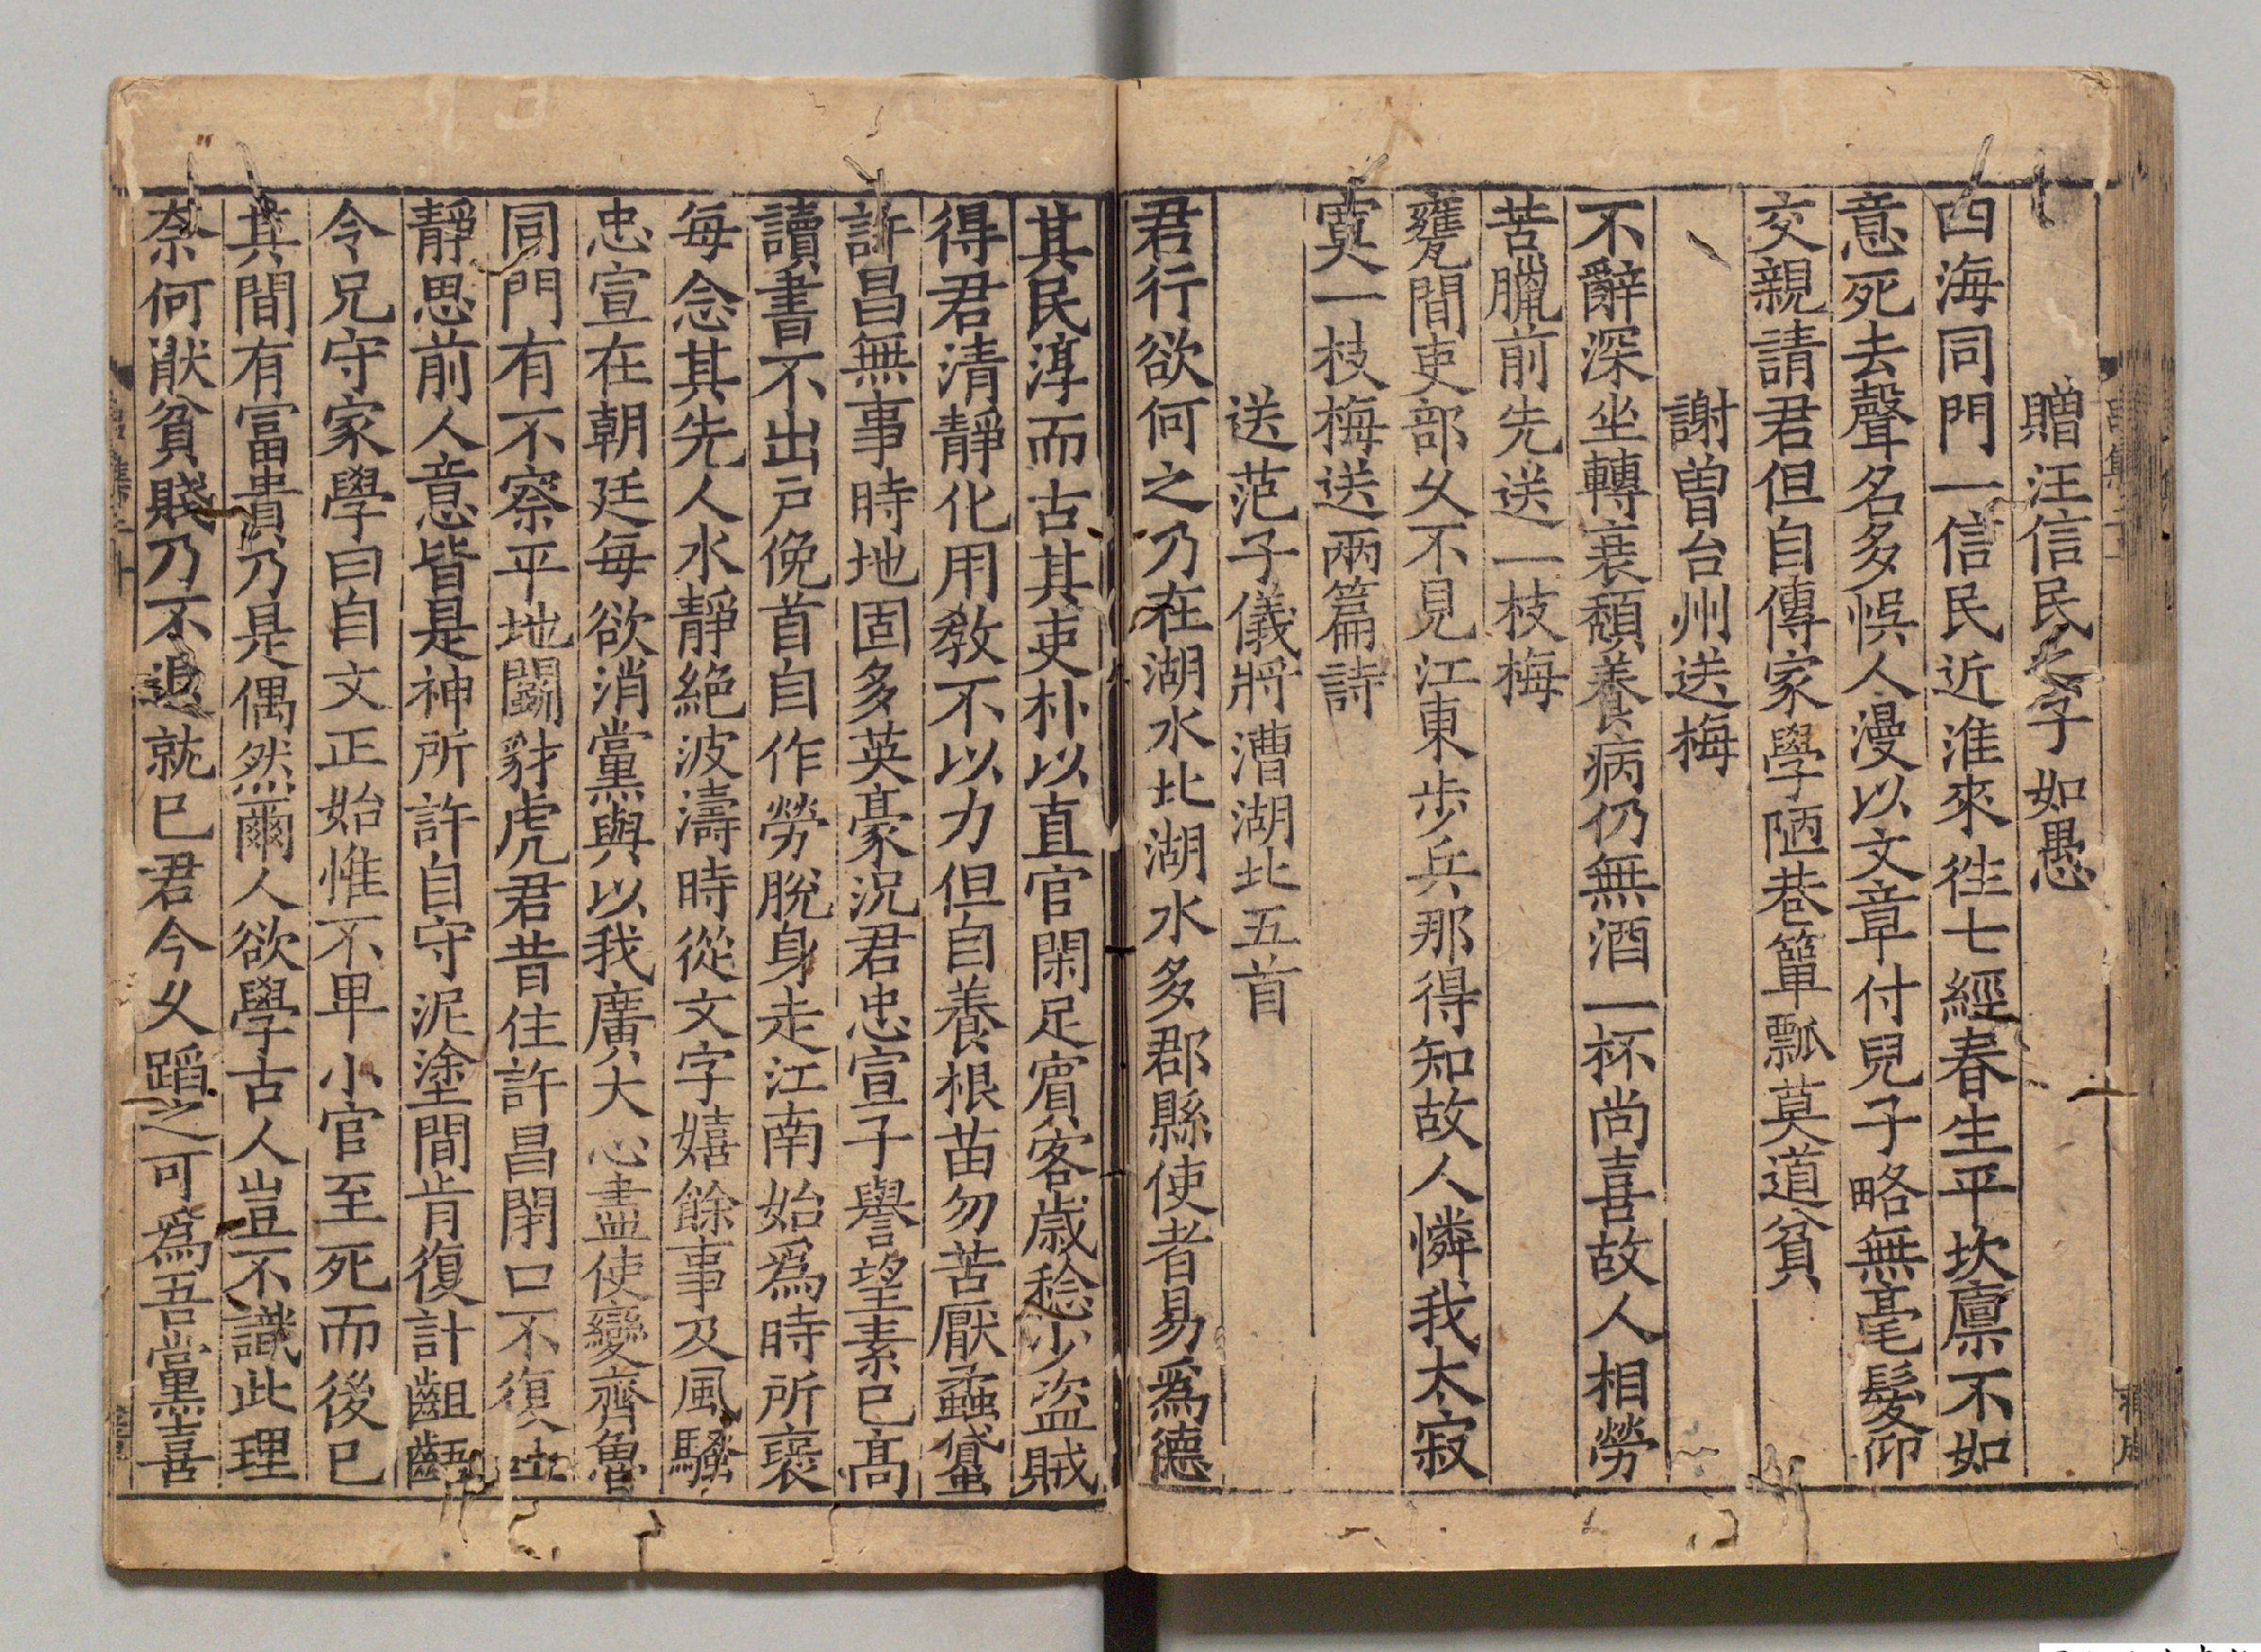 贈汪信民之子如愚
四海同門一信民近淮來徃七經春生平坎廪不如
意死去聲名多悞人漫以文章付兒子略無毫髮仰
交親請君但自傳家學陋巷簞瓢莫道貧
謝曽台州送梅
不辭深坐轉衰頽養病仍無酒一杯尚喜故人相勞
苦臘前先送一枝梅
甕間吏部乆不見江東歩兵那得知故人憐我太寂
寞一枝梅送兩篇詩
送范子儀將漕湖北五首
君行欲何之乃在湖水北湖水多郡縣使者易爲德
其民淳而古其吏朴以直官閑足賓客歳稔少盗賊
得君清靜化用教不以力但自養根苗勿苦厭蟊蠈
許昌無事時地固多英豪况君忠宣子譽望素已高
讀書不出戸俛首自作勞脫身走江南始爲時所襃
每念其先人水靜絶波濤時從文字嬉餘事及風騷
忠宣在朝廷每欲消黨與以我廣大心盡使變齊魯
同門有不察平地闘豺虎君昔住許昌閉口不復吐
靜思前人意皆是神所許自守泥塗間肯復計齟齬
令兄守家學曰自文正始惟不卑小官至死而後已
其間有冨貴乃是偶然爾人欲學古人豈不識此理
柰何猒貧賤乃不退就已君今乆蹈之可爲吾黨喜